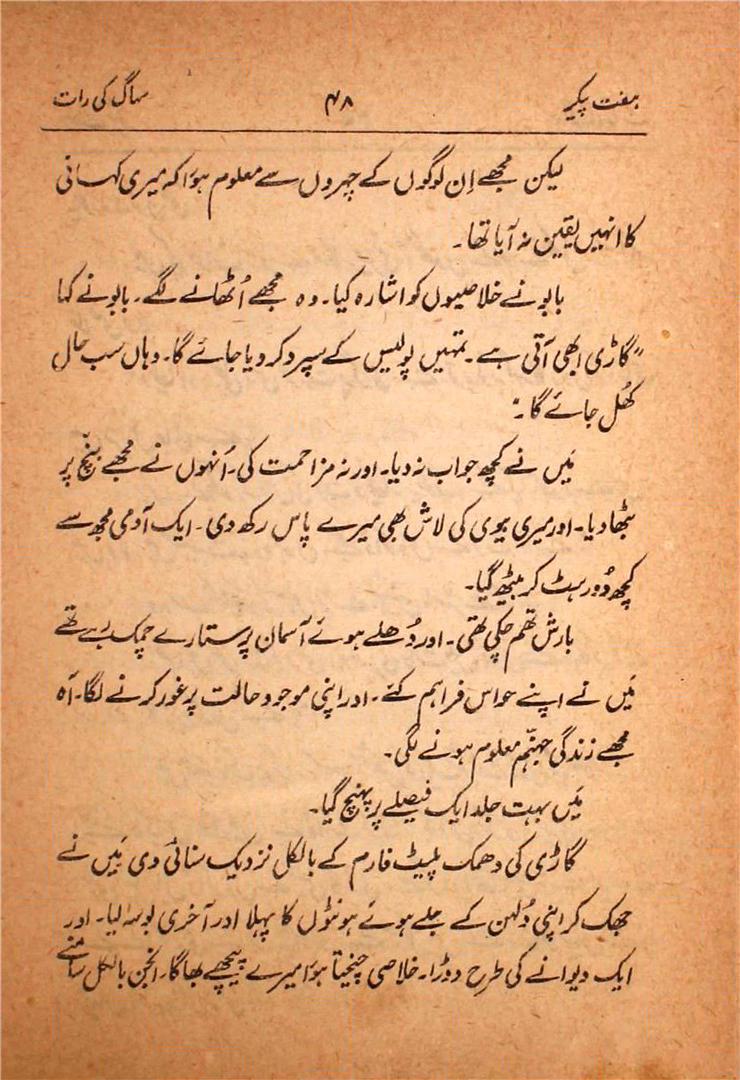 ہفت پیکر ۴۸ سہاگ کی رات
لیکن مجھے اِن لوگوں کے چہروں سے معلوم ہوا کہ میری کہانی
کا انہیں یقین نہ آیا تھا۔
بابو نے خلاصیوں کو اشارہ کیا۔ وہ مجھے اُٹھانے لگے۔ بابو نے کہا
"گاڑی ابھی آتی ہے۔ تمہیں پولیس کے سپرد کر دیا جائے گا۔ وہاں سب حال
کھُل جائے گا۔"
مَیں نے کچھ جواب نہ دیا۔ اور نہ مزاحمت کی۔ اُنہوں نے مجھے بنچ پر
بٹھا دیا۔ اور میری بیوی کی لاش بھی میرے پاس رکھ دی۔ ایک آدمی مجھ سے
کچھ دُور ہٹ کر بیٹھ گیا۔
بارش تھم چکی تھی۔ اور دُھلے ہوئے آسمان پر ستارے چمک رہے تھے
مَیں نے اپنے حواس فراہم کئے۔ اور اپنی موجود حالت پر غور کرنے لگا۔ آہ
مجھے زندگی جہنّم معلوم ہونے لگی۔
مَیں بہت جلد ایک فیصلے پر پہنچ گیا۔
گاڑی کی دھمک پلیٹ فارم کے بالکل نزدیک سنائی دی مَیں نے
جھک کر اپنی دُلہن کے جلے ہوئے ہونٹوں کا پہلا اور آخری بوسہ لیا۔ اور
ایک دیوانے کی طرح دوڑا۔ خلاصی چیختا ہوا میرے پیچھے بھاگا۔ انجن بالکل سامنے